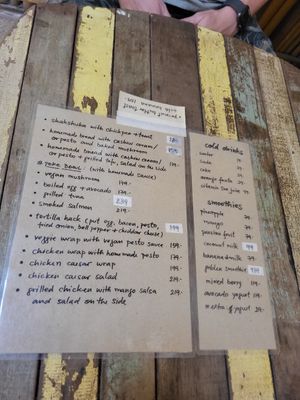 peanut butter toast
with banana 109.
• shakshuka with chickpea + toast
• homemade bread with cashew cream/
or pesto and baked mushroom
• homemade bread with cashew cream/
or pesto + grilled tofu, salad on the side 179.-
• vegan mushroom 199.-
• boiled egg + avocado 179.-
• grilled tuna 239
• smoked salmon 219.-
• tortilla hack (put egg, bacon, pesto, 199
fried onion, bell pepper + cheddar cheese)
• veggie wrap with vegan pesto sauce 159.-
• chicken wrap with homemade pesto 179.-
• chicken caesar wrap 199.-
• chicken caesar salad 219.-
• grilled chicken with mango salsa 219.-
and salad on the side
cold drinks
water
soda
coke
orange fanta
smoothies
pineapple
mango
passion fruit
coconut milk 149
banana + milk
golden smoothie
mixed berry
avocado yogurt